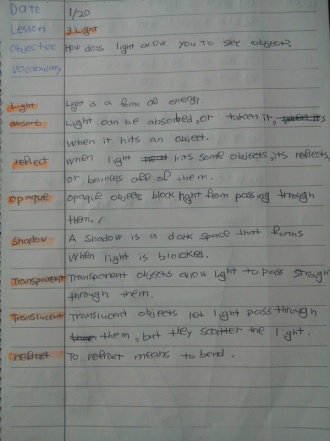 Date 1/20
Lesson 3. Light
Objective How does light allow you to see objects?
Vocabulary
Light Light is a form of energy.
absorb Light can be absorbed, or taken it,
when it hits an object.
reflect when light hits some objects, its reflects,
or bounces off of them.
opaque opaque objects block light from passing through
them.
Shadow A Shadow is a dark space that forms
when light is blocked.
Transparent Transparent objects allow light to pass straigh
through them.
Translucent Translucent objects let light pass through
them, but they scatter the light.
refract To refract means to bend.